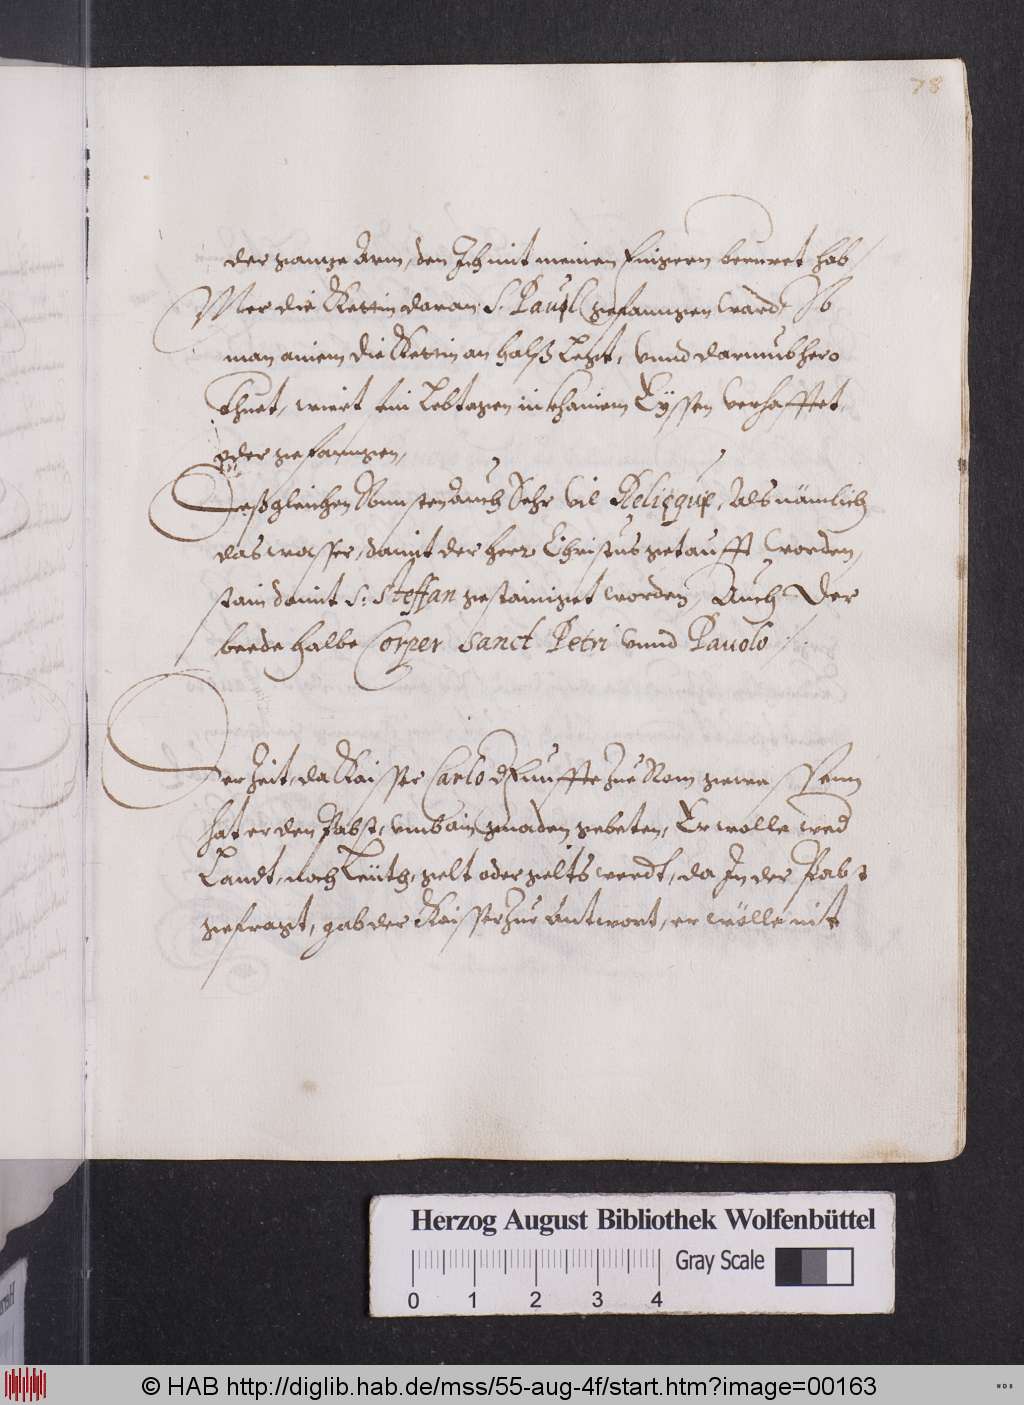 78
der gantze Arm, den Ich mit meinen Fingern berueret hab
Mer die Kettin daran S. Paul gefanngen ward, So
man ainem die Kettin an halß Legt, vnnd darmub hero
thuet, wiert sein Lebtagen in khainem Eyssen verhafftet
oder gefanngen,
Deßgleichen Sonnsten auch Sehr vil Relicque, Als nämlich
das wasser, damit der herr Christus getaufft worden,
stain damit S: Steffan gestainiget worden, Auch Der
beede halbe Corper Sanct Petri vnnd Pauolo
Der Zeit, da Kaisser Carlo d Funffte Zue Rom gewessenn
hat er den Pabst, vmb ain gnaden gebeten, Er wolle wed
Landt, noch Leüth, gelt oder gelts werdt, da In der Pabst
gefragt, gab der Kaisser Zur Antwort, er wölle nit
Herzog August Bibliothek Wolfenbüttel
Gray Scale
0 1 2 3 4
© HAB http://diglib.hab.de/mss/55-aug-4f/start.htm?image=00163